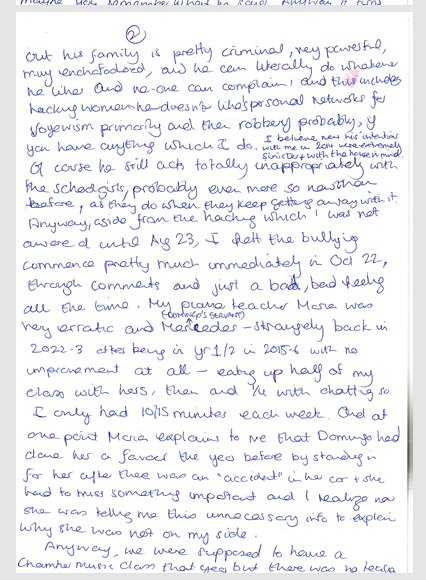 ②
out his family is pretty criminal, very powerful,
muy enchofadored, and he can literally do whatever
he likes and no-one can complain, and this includes
hacking women he doesn't like's personal networks for
voyewism primarily and then robbery probably, if
you have anything which I do. I believe now his intentions
with me in 2014 were extremely
sinister + with the house in mind.
Of course he still acts totally inappropriately with
the schoolgirls, probably even more so now than
before, as they do when they keep getting away with it.
Anyway, aside from the hacking which I was not
aware of until Aug 23, I felt the bullying
commence pretty much immediately in Oct 22,
through comments and just a bad, bad feeling
all the time. My piano teacher Maria was
(DOMINGO'S SERVANT)
very erratic and Mercedes - strangely back in
2022-3 after being in yr 1/2 in 2015-6 with no
improvement at all - eating up half of my
class with hers, then and 1/4 with chatting so
I only had 10/15 minutes each week. And at
one point Maria explains to me that Domingo had
done her a favour the year before by standing in
for her after there was an "accident" in her car + she
had to miss something important and I realize now
she was telling me this unnecessary info to explain
why she was not on my side.
Anyway, we were supposed to have a
Chamber music class that year but there was no teacher